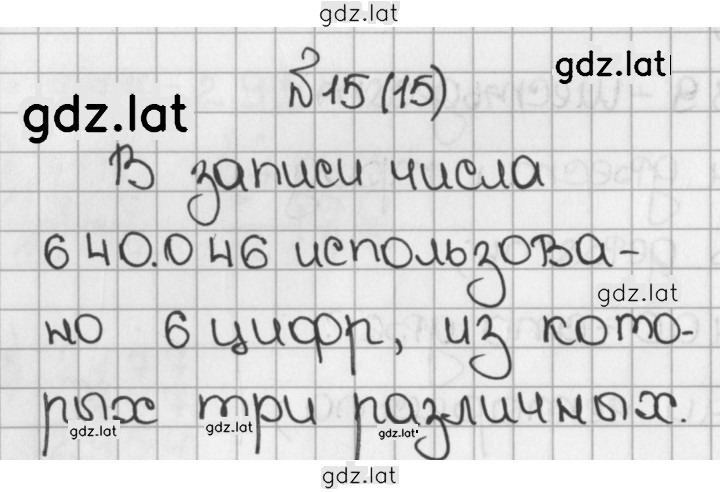 gdz.lat
№15 (15)
gdz.lat
gdz.lat
В записи числа
640.046 использова-
gdz.lat
но 6 цифр, из кото-
рых три различных.
gdz.lat gdz.lat gdz.lat
gdz.lat